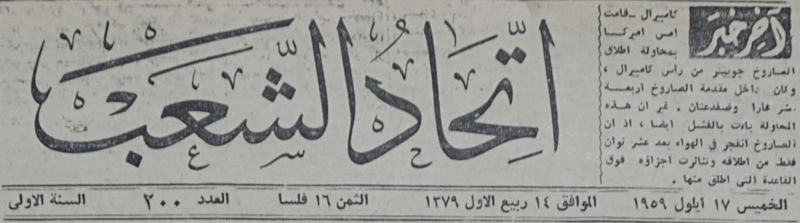 آخر خبر
كاميرال ـ قامت
امس اميركا
بمحاولة اطلاق
الصاروخ جوبيتر من رأس كاميرال ،
وكان داخل مقدمة الصاروخ اربعة
عشر فارا وضفدعتان . غير ان هذه
المحاولة باءت بالفشل ايضا ، اذ ان
الصاروخ انفجر في الهواء بعد عشر ثوان
فقط من اطلاقه وتناثرت اجزاؤه فوق
القاعدة التي اطلق منها .
اتحاد الشعب
الخميس ١٧ ايلول ١٩٥٩ الموافق ١٤ ربيع الاول ١٣٧٩ الثمن ١٦ فلسا العدد ٢٠٠ السنة الاولى